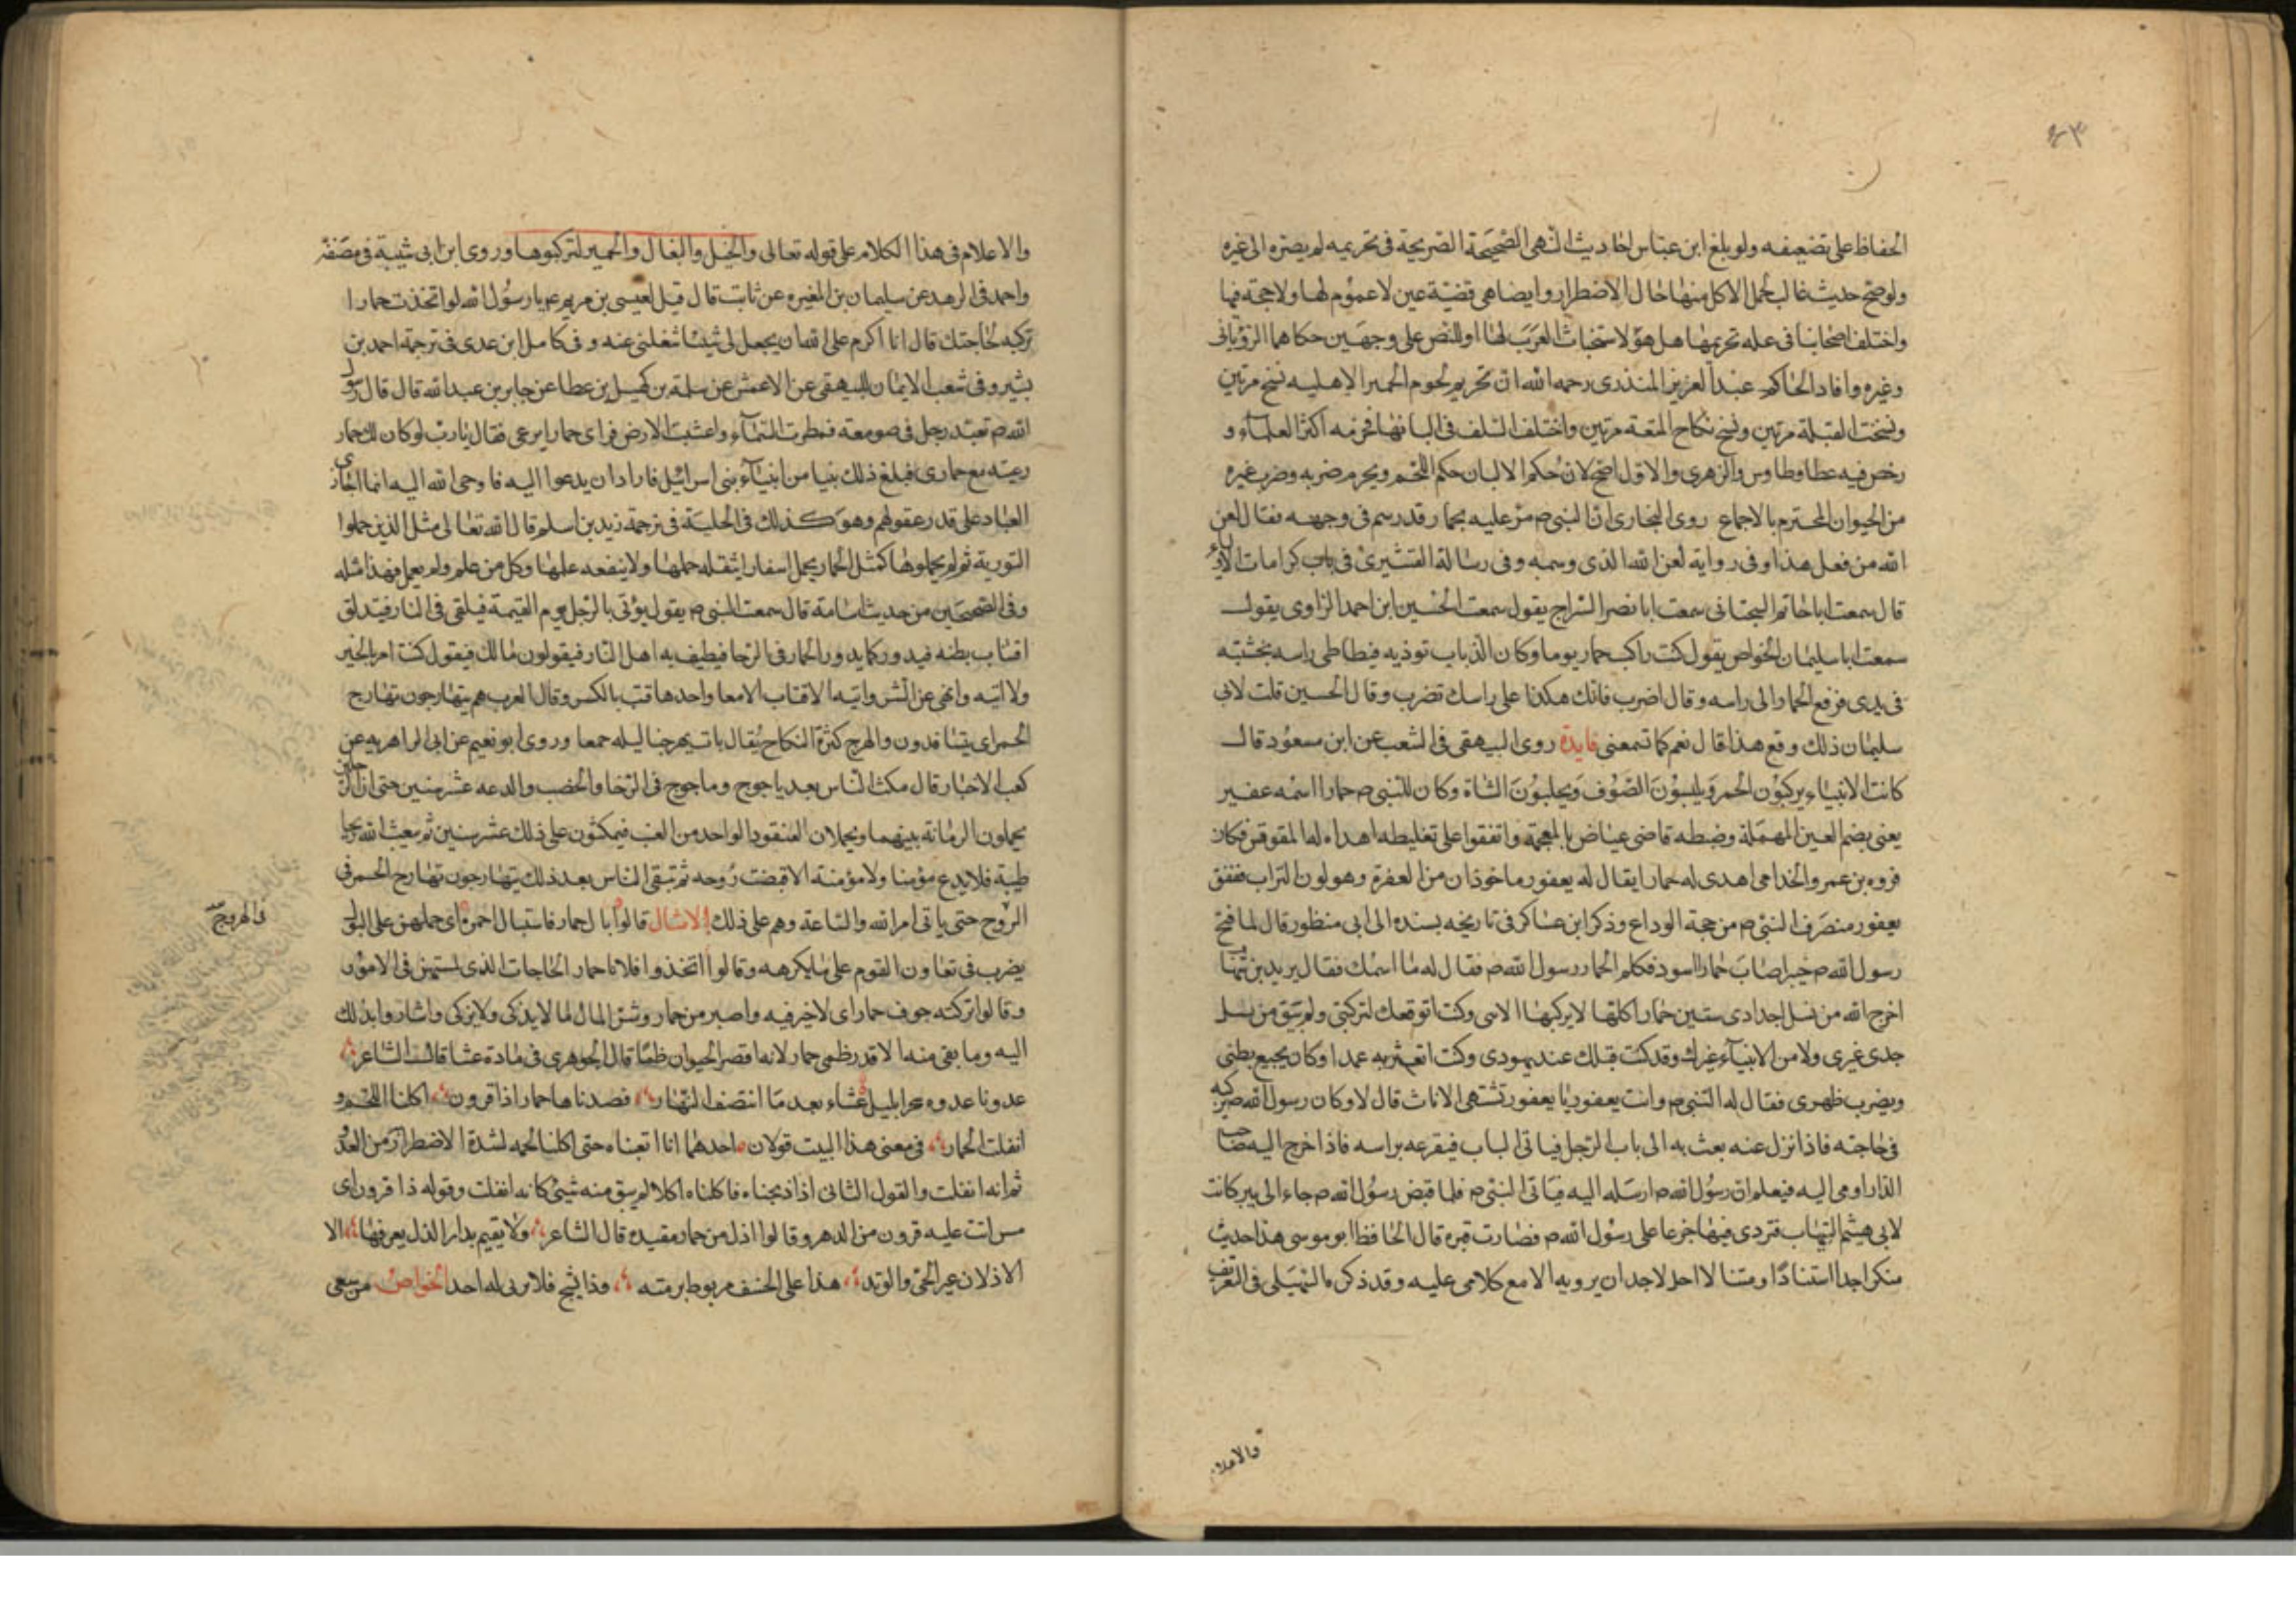 الحفاظ على تضعيفه ولو بلغ ابن عباس احاديث النهى الصحيحة الصريحة فى تحريمه لم يصره الى غيره
ولو صح حديث غالب لحمل الاكل منها حال الاضطرار وايضا هى قضية عين لا عموم لها ولا حجة فيها
واختلف اصحابنا فى علة تحريمها هل هو لاستخباث العرب لها او للنص على وجهين حكاهما الرويانى
وغيره وافاد الحاكم عبد العزيز المنذرى رحمه الله ان تحريم لحوم الحمر الاهليه نسخ مرتين
ونسخت القبلة مرتين ونسخ نكاح المتعة مرتين واختلف السلف فى البانها فحرمه اكثر العلماء و
رخص فيه عطا وطاوس والزهرى والاول اصح لان حكم الالبان حكم اللحم ويحرم ضربه وضرب غيره
من الحيوان المحترم بالاجماع روى البخارى ان النبى م مر عليه بحمار قد رسم فى وجهه فقال لعن
الله من فعل هذا وفى رواية لعن الله الذى وسمه وفى رسالة القشيرى فى باب كرامات الاولياء
قال سمعت ابا حاتم السجتانى سمعت ابا نصر السراج يقول سمعت الحسين ابن احمد الرازى يقول
سمعت ابا سليمان الخواص يقول كنت راكب حمار يوما وكان الذباب توذيه فيطاطى راسه بخشبته
فى يدى فرفع الحمار الى راسه وقال اضرب فانك هكذا على راسك تضرب وقال الحسين قلت لابى
سليمان ذلك وقع هذا قال نعم كما تسمعنى فايدة روى البيهقى فى الشعب عن ابن مسعود قال
كانت الانبياء يركبون الحمر ويلبسون الصوف ويحلبون الشاة وكان للنبى م حمارا اسمه عفير
يعنى بضم العين المهملة وضبطه قاضى عياض بالمعجمة واتفقوا على تغليطه اهداه له المقوقس فكان
فروه بن عمرو الخدامى اهدى له حمارا يقال له يعفور ماخوذان من العفرة وهو لون التراب فنفق
يعفور منصرف النبى م من حجة الوداع وذكر ابن عساكر فى تاريخه بسنده الى ابى منظور قال لما فتح
رسول الله م خيبر اصاب حمارا اسود فكلم الحمار رسول الله م فقال له ما اسمك فقال يزيد بن شهاب
اخرج الله من نسل اجدادى ستين حمارا كلها لا يركبها الا نبى وكنت اتوقعك لتركبنى ولم يبق من نسل
جدى غيرى ولا من الانبياء غيرك وقد كنت قبلك عند يهودى وكنت اتعثر به عمدا وكان يجيع بطنى
ويضرب ظهرى فقال له النبى م وانت يعفور يا يعفور تشتهى الاناث قال لا وكان رسول الله م يركبه
فى حاجته فاذا نزل عنه بعث به الى باب الرجل فياتى الباب فيقرعه براسه فاذا خرج اليه صاحب
الدار اومى اليه فيعلم ان رسول الله م ارسله اليه فياتى النبى م فلما قبض رسول الله م جاء الى بير كانت
لابى هيثم التيهاب فتردى فيها جزعا على رسول الله م فصارت قبره قال الحافظ ابو موسى هذا حديث
منكر اجدا استنادا ومتنا لا احل لاحد ان يرويه الا مع كلامى عليه وقد ذكر ما السهيلى فى التعريف
والاعلام
والاعلام فى هذا الكلام على قوله تعالى والخيل والبغال والحمير لتركبوها وروى ابن ابى شيبة فى مصنفه
واحمد فى الزهد عن سليمان بن المغيره عن ثابت قال قيل لعيسى بن مريم عم يا رسول الله لو اتخذت حمارا
تركبه لحاجتك قال انا اكرم على الله ان يجعل لى شيئا شغلنى عنه وفى كامل ابن عدى فى ترجمة احمد بن
بشير وفى شعب الايمان للبيهقى عن الاعمش عن سلمة بن كهيل بن عطا عن جابر بن عبد الله قال قال رسول
الله م تعبد رجل فى صومعة فمطرت السماء واعشبت الارض فراى حمار ايرعى فقال يا رب لو كان لك حمار
رعيته مع حمارى فبلغ ذلك نبيا من انبياء بنى اسرائيل فاراد ان يدعوا اليه فاوحى الله اليه انما اجازى
العباد على قدر عقولهم وهو كذلك فى الحلية فى ترجمة زيد بن اسلم قال الله تعالى مثل الذين حملوا
التورية ثم لم يحملوها كمثل الحمار يحمل اسفارا يثقله حملها ولا ينفعه علمها وكل من علم ولم يعمل فهذا مثله
وفى الصحيحين من حديث اسامة قال سمعت النبى م يقول يؤتى بالرجل يوم القيمة فيلقى فى النار فتندلق
اقتاب بطنه فيدور كما يدور الحمار فى الرحا فيطيف به اهل النار فيقولون مالك فيقول كنت امر بالخير
ولا اتيه وانهى عن الشر واتيه الاقتاب الامعا واحدها قتب بالكسر وقال العرب هم يتهارجون تهارج
الحمر اى يتسافدون والهرج كثرة النكاح يقال بات يهرجها ليله جمعا وروى ابو نعيم عن ابى الزاهريه عن
كعب الاحبار قال مكث الناس بعد ياجوج وماجوج فى الرخا والخصب والدعه عشر سنين حتى ان الرجلين
يحملون الرمانة بينهما ويحملان العنقود الواحد من العنب فيمكثون على ذلك عشر سنين ثم يبعث الله ريحا
طيبة فلا يدع مؤمنا ولا مؤمنة الا قبضت روحه ثم تبقى الناس بعد ذلك يتهارجون تهارج الحمر فى
الروح حتى ياتى امر الله والساعة وهم على ذلك الامثال قالوا بال حمار فاستبال احمرة اى حملهن على البول
يضرب فى تعاون القوم على ما يكرهه وقالوا اتخذوا فلانا حمار الحاجات الذى يمتهن فى الامور
وقالوا تركته جوف حمار اى لا خير فيه واصبر من حمار وشر المال لما لا يذكى ولا يزكى واشاروا بذلك
اليه وما بقى منه الا قدر ظمى حمار لانه اقصر الحيوان ظمأ قال الجوهرى فى مادة عشا قالت الشاعر
غدونا غدوه سحرا بليل عشاء بعد ما انتصف النهار قصدناها حمارا ذا قرون اكلنا اللحم و
انفلت الحمار فى معنى هذا البيت قولان احدهما انا اتعبناه حتى اكلنا لحمه لشدة الاضطرار من العدو
ثم انه انفلت والقول الثانى اذا ذبحناه فاكلناه اكلا لم يبق منه شيئ كانه انفلت وقوله ذا قرون اى
مسن اتت عليه قرون من الدهر وقالوا اذل من حمار مقيده قال الشاعر ولا يقيم بدار الذل يعرفها الا
الاذلان عير الحى والوتد هذا على الخسف مربوط برمته وذا يشج فلا يرثى له احد الخواص من سقى
فى المروج